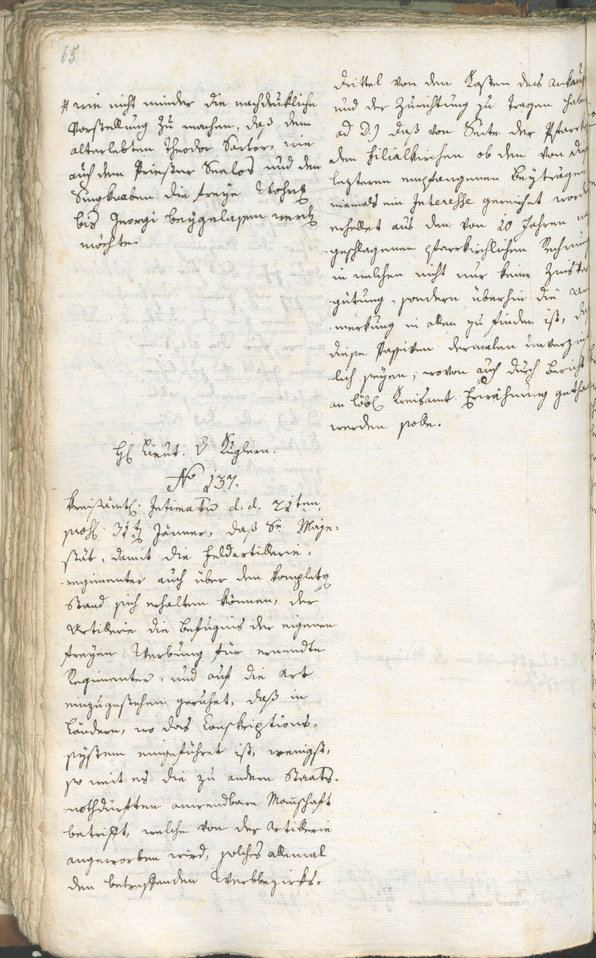 65
# wie nicht minder die nachdrukliche
Vorstellung zu machen, daß dem
alterlebten Theodor Sartor, wie
auch dem Priester Seelos und den
Singknaben die freye Wohng
bis Georgi beygelassen werd
möchte.
H Lieut. v Kuglern.
No 137.
Kreisämtl. Intimatum d. d. 21ten
praes. 31t Jänner, daß Se Maje-
stät, damit die Feldartillerie-
regimenter auch über den kompletg
Stand sich erhalten können, der
Artillerie die Befugnis der eigenen
freyen Werbung für ernendte
Regimenter, und auf die Art
einzugestehen geruhet, daß in
Ländern, wo das Conscriptions-
system eingeführet ist, wenigst,
so weit es die zu andern Staats-
nothdurften anwendbare Mannschaft
betrifft, welche von der Artillerie
angeworben wird, solches allmal
den betreffenden Werbbezirks-
drittel von den Kosten des Ankauf
und der Zurichtung zu tragen habe
ad d.) daß von Seite der Pfarr
den Filialkirchen ob den von die
letzteren empfangenen Beyträgen
niemals ein Interesse gereichet word
erhellet aus den von 20 Jahren
geschlagenen pfarrkirchlichen Rechnu
in welchen nicht nur keine Zinsve
gütung, sondern überhin die An
merkung in allen zu finden ist, da
diese Passiven dermalen unverzin
lich seyen; wovon auch durch Bericht
an löbl Kreisamt Erwähnung getha
werden solle.